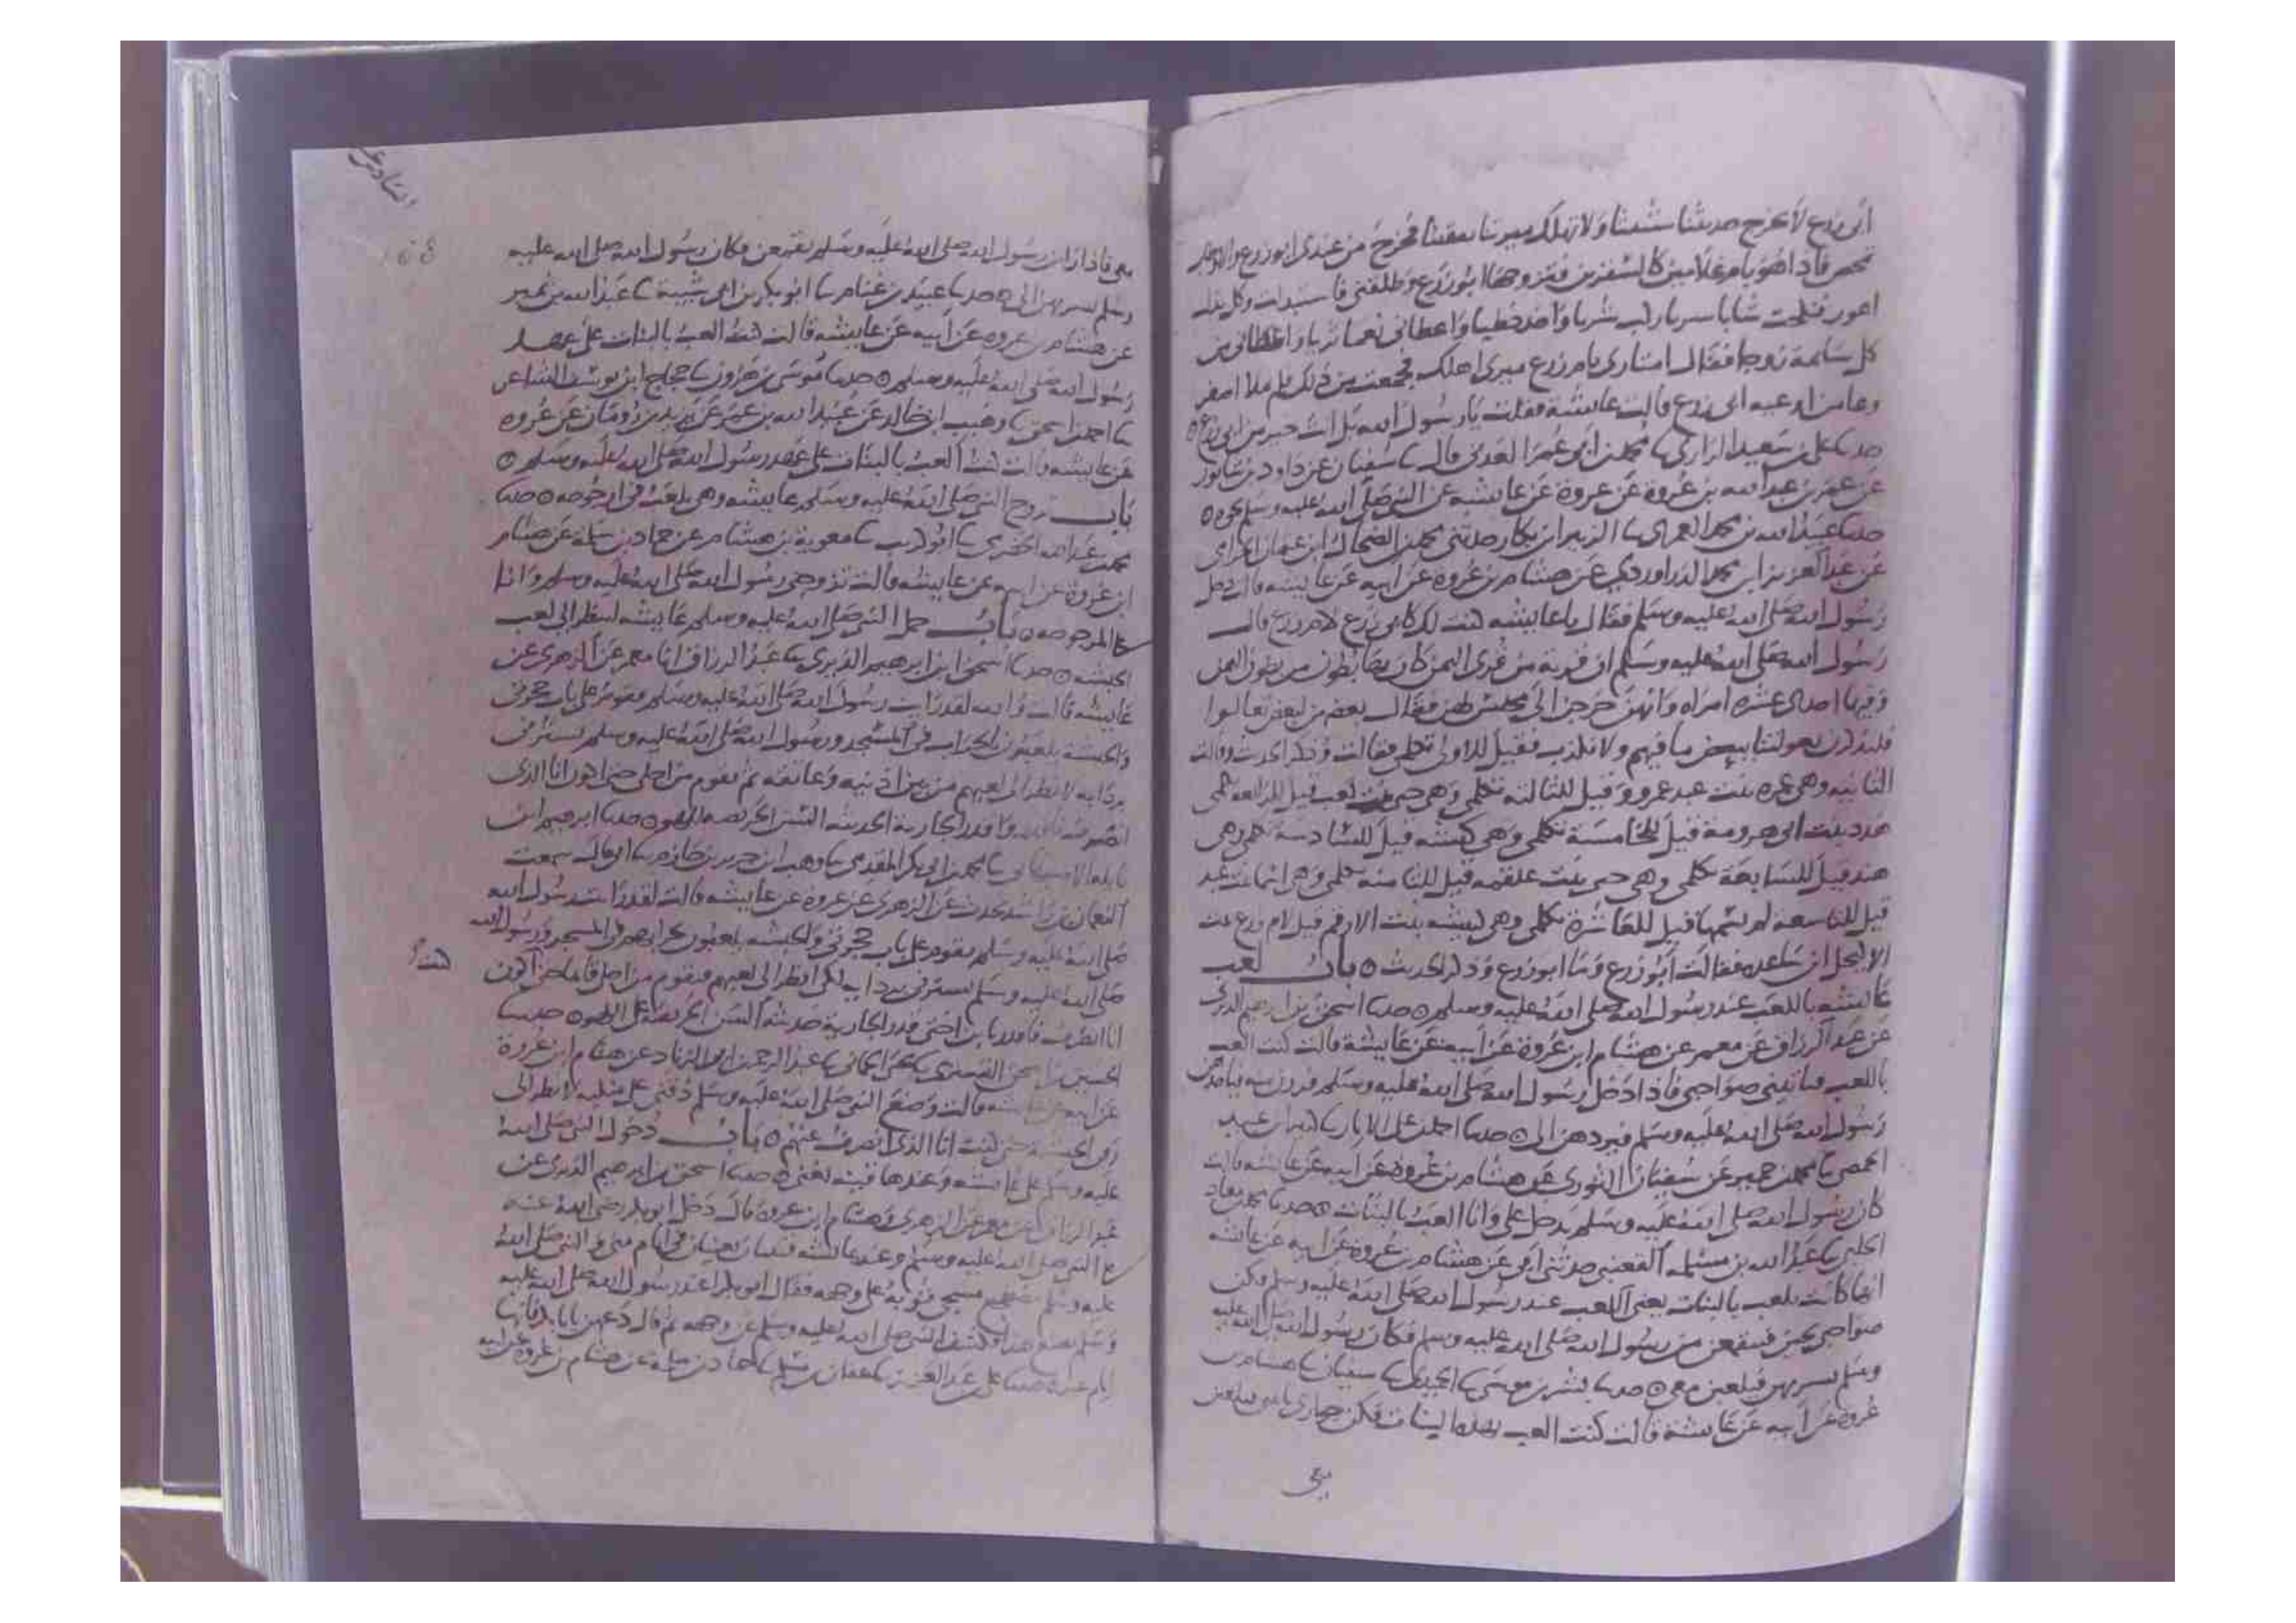 ابى زرع لا تخرج حديثنا تبثيثا ولا تهلك ميرتنا تنقيثا فخرج من عندى ابو زرع والاوطاب
تمخض فاذا هو بام غلامين كالسفرين فتزوجها ابو زرع وطلقنى فاستبدلت وكل بدل
اعور فنكحت شابا سريا ركب شريا واخذ خطيا واعطانى نعما ثريا واعطانى من
كل سايمة زوجا فقال امتارى يام زرع وميرى اهلك فجمعت من ذلك فلم يملا اصغر
وعا من اوعيه ابى زرع قالت عايشة فقلت يا رسول الله بل انت خير من ابى زرع
حدثنا على بن سعيد الرازى نا محمد بن ابى عمر العدنى قال نا سفيان عن داود بن شابور
عن عمر بن عبد الله بن عروة عن عروة عن عايشه عن النبى صلى الله عليه وسلم نحوه
حدثنا عبد الله بن محمد العمرى نا الزبير ابن بكار حدثنى محمد بن الضحاك ابن عثمان الحزامى
عن عبد العزيز ابن محمد الدراوردى عن هشام بن عروة عن ابيه عن عايشه قالت دخل
رسول الله صلى الله عليه وسلم فقال يا عايشه كنت لك كابى زرع لام زرع قالت
رسول الله صلى الله عليه وسلم ان قرية من قرى اليمن كان بها بطون من بطون اليمن
وفيها احدى عشره امراه وانهن خرجن الى مجلس لهن فقال بعضهن لبعض تعالوا
فلنذكرن بعولتنا ببعض ما فيهم ولا نكذب فقيل للاولى تكلمى فقالت وذكر الحديث وقالت
الثانيه وهى عمره بنت عبد عمرو وقيل للثالثه تكلمى وهى حبى بنت كعب قيل للرابعه تكلمى
مهدد بنت ابى هرومة قيل للخامسة تكلمى وهى كبشه قيل للسادسة تكلمى وهى
هند قيل للسابعة تكلمى وهى حبى بنت علقمه قيل للثامنه تكلمى وهى بنت عبد
قيل للتاسعه لم يسمها قيل للعاشرة تكلمى وهى كبيشه بنت الارقم قيل لام زرع بنت
الاكيحل ابن ساعده فقالت ابو زرع وما ابو زرع وذكر الحديث باب لعب
عايشه باللعب عند رسول الله صلى الله عليه وسلم حدثنا اسحق بن ابرهيم الدبرى
عن عبد الرزاق عن معمر عن هشام ابن عروة عن ابيه عن عايشة قالت كنت العب
باللعب فياتينى صواحبى فاذا دخل رسول الله صلى الله عليه وسلم فررن منه فياخذهن
رسول الله صلى الله عليه وسلم فيردهن الى حدثنا احمد بن على الابار نا كثير ابن عبيد
الحمصى نا محمد بن حمير عن سفيان الثورى عن هشام بن عروة عن ابيه عن عايشه قالت
كان رسول الله صلى الله عليه وسلم يدخل على وانا العب بالبنات حدثنا محمد بن معاذ
الحلبى نا عبد الله بن مسلمه القعنبى حدثنى ابى عن هشام بن عروة عن ابيه عن عايشه
انها كانت تلعب بالبنات يعنى اللعب عند رسول الله صلى الله عليه وسلم فكن
صواحبى يجين فينقمعن من رسول الله صلى الله عليه وسلم فكان رسول الله صلى الله عليه
وسلم يسربهن فيلعبن معى حدثنا بشر بن موسى نا الحميدى نا سفيان نا هشام بن
عروة عن ابيه عن عايشة قالت كنت العب بهذه البنات فكن جوارى ياتين يلعبن
معى
السادس
168
معى فاذا راين رسول الله صلى الله عليه وسلم تقمعن فكان رسول الله صلى الله عليه
وسلم يسربهن الى حدثنا عبيد بن غنام نا ابو بكر بن ابى شيبة نا عبد الله بن نمير
عن هشام بن عروه عن ابيه عن عايشه قالت كنت العب بالبنات على عهد
رسول الله صلى الله عليه وسلم حدثنا موسى بن هرون نا حجاج ابن يوسف الشاعر
نا احمد بن اسحق نا وهيب ابن خالد عن عبيد الله بن عمر عن يزيد بن رومان عن عروه
عن عايشه قالت كنت العب بالبنات على عهد رسول الله صلى الله عليه وسلم
باب تزوج النبى صلى الله عليه وسلم عايشه وهى تلعب فى ارجوحه حدثنا
محمد بن عبد الله الحضرمى نا ابو كريب نا معوية بن هشام عن حماد بن سلمة عن هشام
ابن عروة عن ابيه عن عايشه قالت تزوجنى رسول الله صلى الله عليه وسلم وانا
على المرجوحه باب حمل النبى صلى الله عليه وسلم عايشه لتنظر الى لعب
الحبشه حدثنا اسحق ابن ابرهيم الدبرى عن عبد الرزاق انا معمر عن الزهرى عن
عايشه قالت والله لقد رايت رسول الله صلى الله عليه وسلم يقوم على باب حجرتى
والحبشه يلعبون بالحراب فى المسجد ورسول الله صلى الله عليه وسلم يسترنى
بردايه لانظر الى لعبهم من بين اذنيه وعاتقه ثم يقوم من اجلى حتى اكون انا الذى
انصرف فاقدروا قدر الجارية الحديثه السن الحريصه للهو حدثنا ابرهيم ابن
نايله الاصبهانى نا محمد بن ابى بكر المقدمى نا وهب ابن جرير بن حازم نا ابى قال سمعت
النعمان بن راشد يحدث عن الزهرى عن عروة عن عايشه قالت لقد رايت رسول الله
صلى الله عليه وسلم يقوم على باب حجرتى والحبشه يلعبون بحرابهم فى المسجد ورسول الله
صلى الله عليه وسلم يسترنى بردايه لكى انظر الى لعبهم فيقوم من اجلى قايما حتى اكون
كنت
انا انصرف فاقدروا قدر الجارية حديثة السن الحريصة على اللهو حدثنا
الحسين بن اسحق التسترى نا يحيى الحمانى نا عبد الرحمن ابن ابى الزناد عن هشام ابن عروة
عن ابيه عن عايشه قالت وضع النبى صلى الله عليه وسلم ذقنى على منكبه لانظر الى
زفن الحبشة حتى كنت انا الذى انصرف عنهم باب دخول النبى صلى الله
عليه وسلم على عايشه وعندها قينه تغنى حدثنا اسحق بن ابرهيم الدبرى عن
عبد الرزاق عن معمر عن الزهرى وهشام ابن عروة قال دخل ابو بكر رضى الله عنه
على النبى صلى الله عليه وسلم وعند عايشه قينتان تغنيان فى ايام منى والنبى صلى الله
عليه وسلم مضطجع مسجى ثوبه على وجهه فقال ابو بكر اعند رسول الله صلى الله عليه
وسلم يصنع هذا فكشف النبى صلى الله عليه وسلم عن وجهه ثم قال دعهن يابا بكر فانها
ايام عيد حدثنا على بن عبد العزيز نا عفان بن مسلم نا حماد بن سلمة عن هشام بن عروة عن ابيه